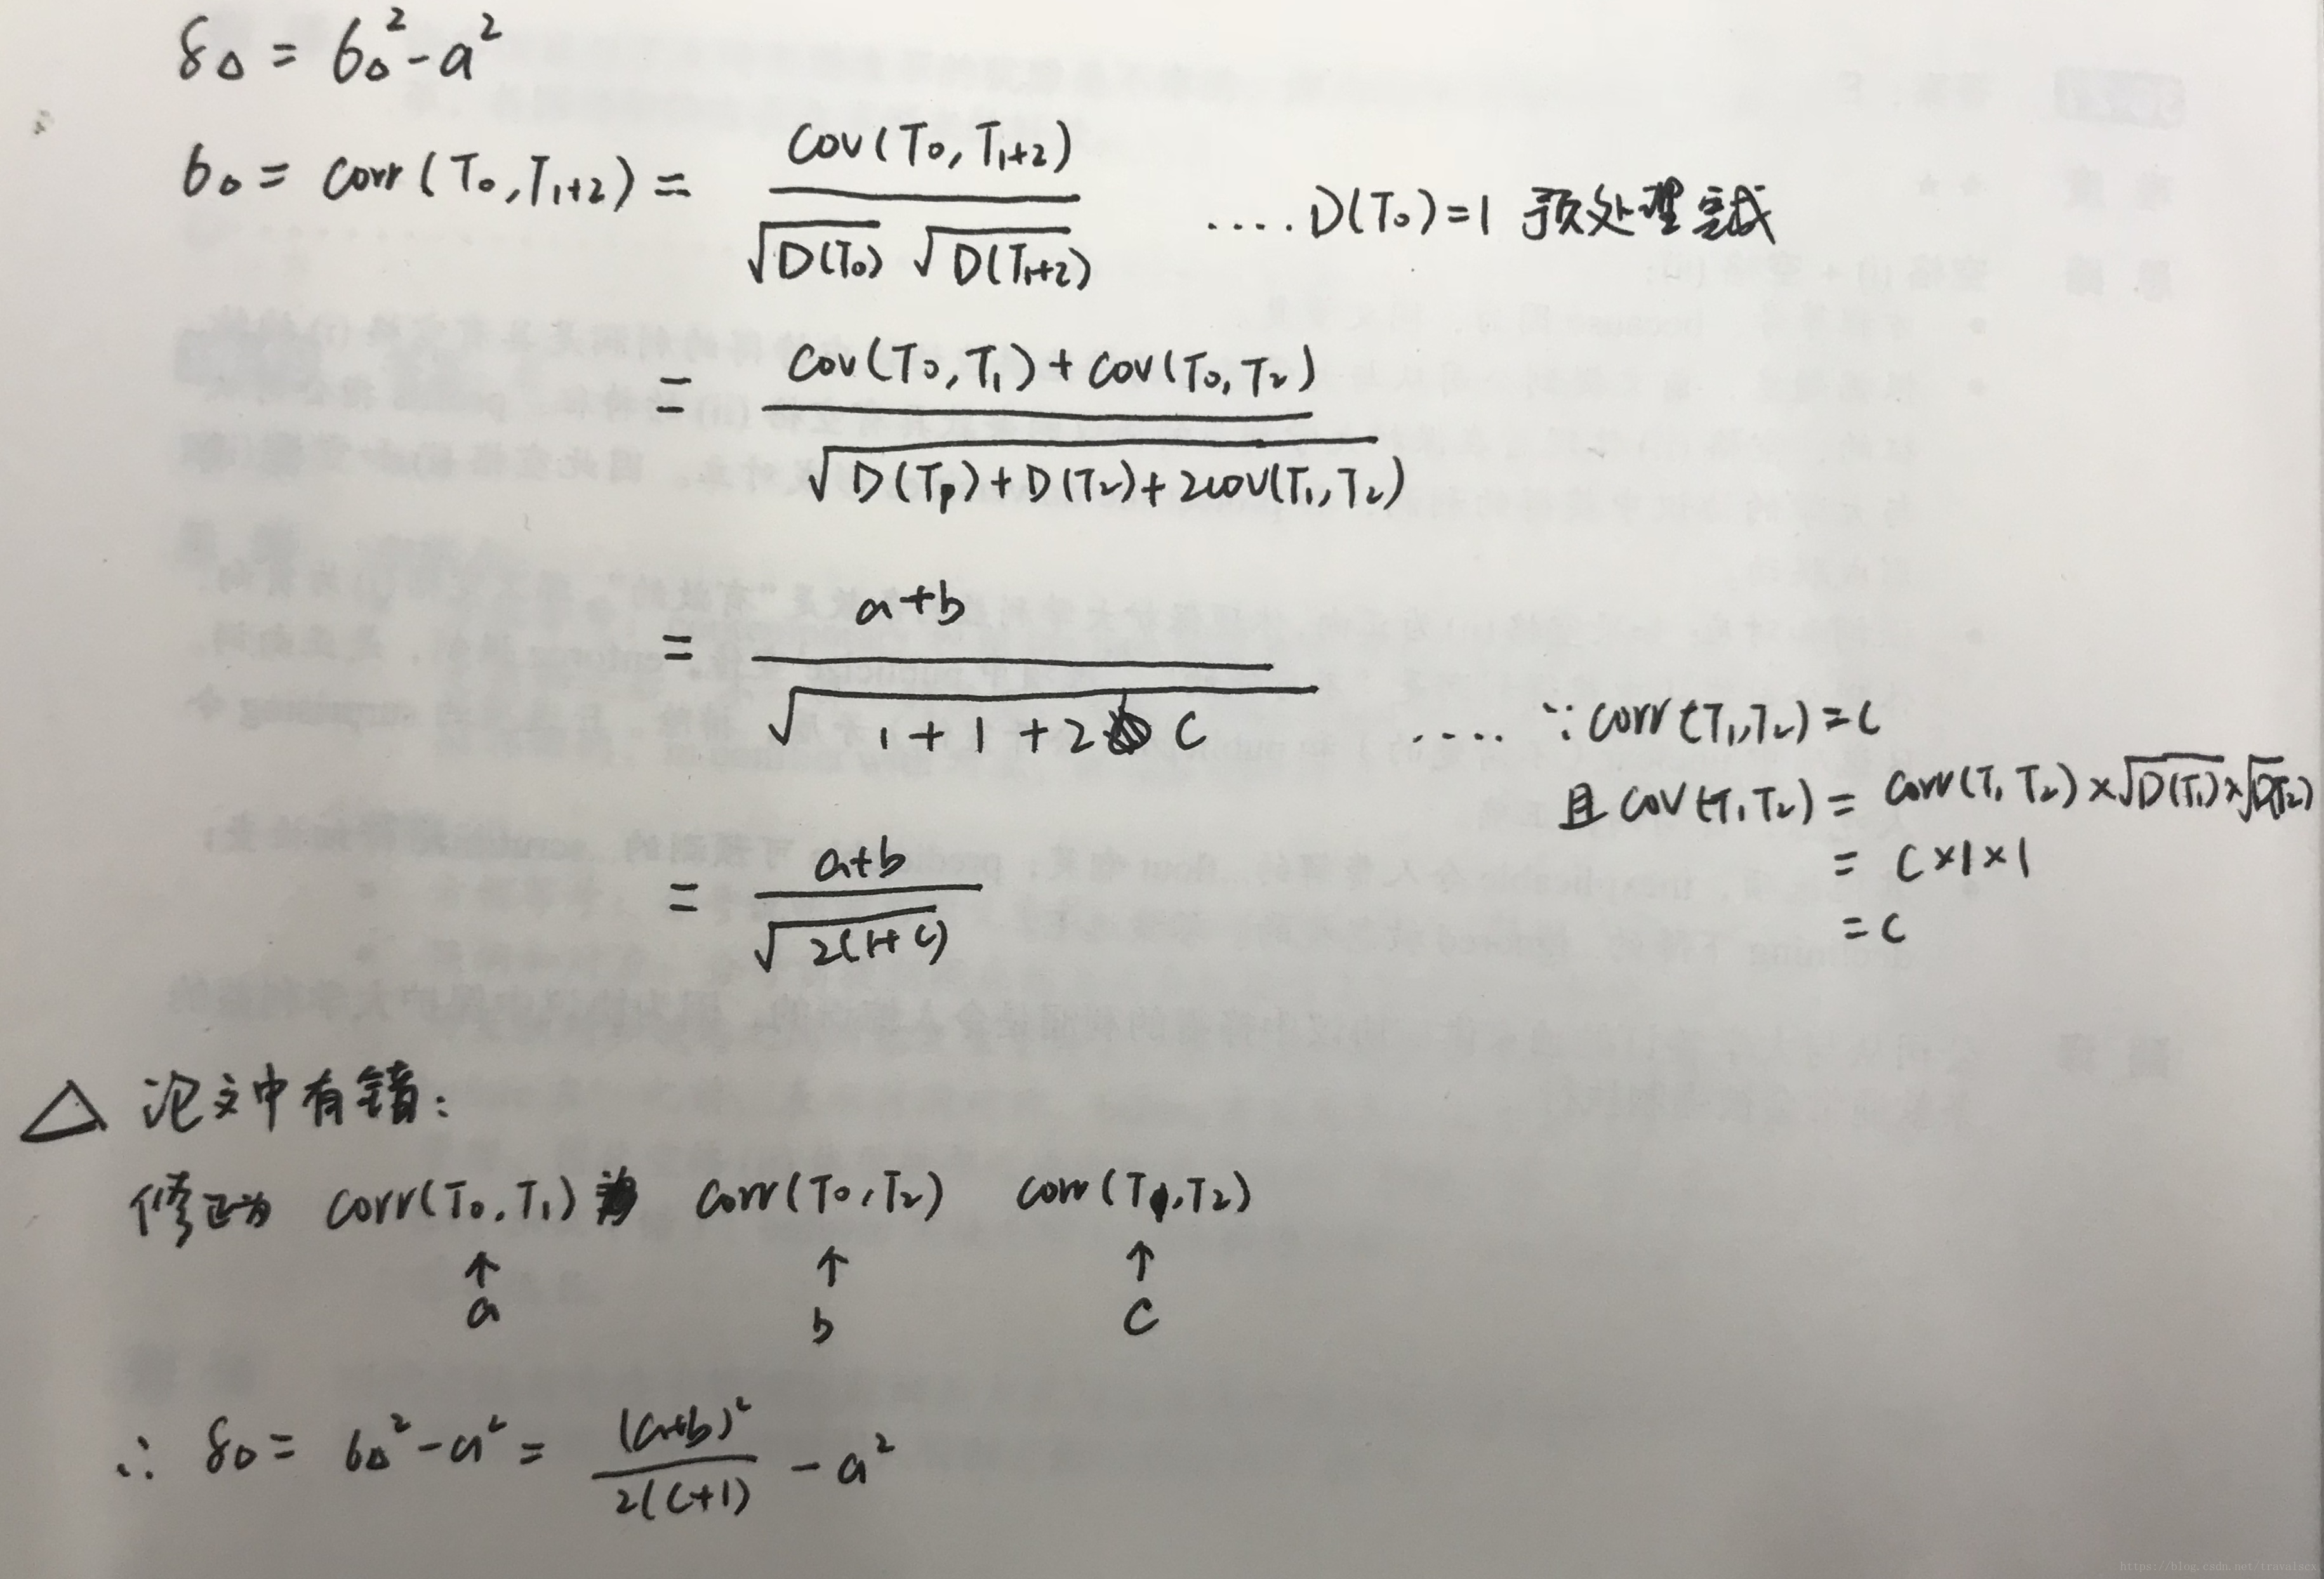 δ△ = б△² - a²
б△ = corr(T₀, T₁₊₂) = cov(T₀, T₁₊₂) / √D(T₀) √D(T₁₊₂) .... D(T₀)=1 预处理完成
= cov(T₀, T₁) + cov(T₀, T₂) / √D(T₁)+D(T₂)+2cov(T₁, T₂)
= a+b / √1+1+2c .... ∵ corr(T₁,T₂)=c
且 cov(T₁T₂) = corr(T₁T₂)×√D(T₁)×√D(T₂)
= c×1×1
= a+b / √2(1+c)
= c
△ 论文中有错:
修正为 corr(T₀,T₁) corr(T₀,T₂) corr(T₁,T₂)
↑ ↑ ↑
a b c
∴ δ△ = б△² - a² = (a+b)² / 2(c+1) - a²
https://blog.csdn.net/travalscx